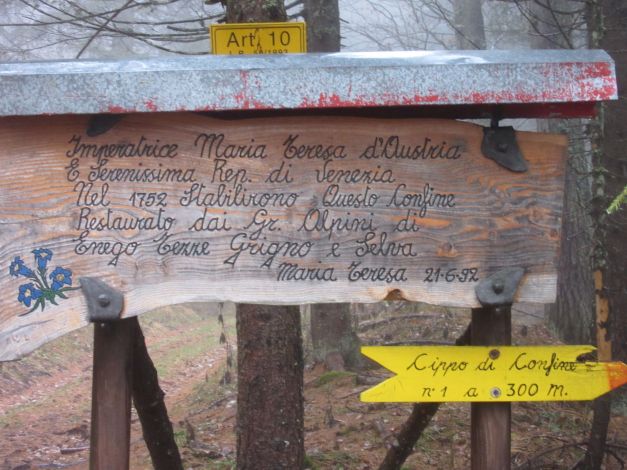 Art. 10
L.R. 56/1992
Imperatrice Maria Teresa d'Austria
E Serenissima Rep. di Venezia
Nel 1752 Stabilirono Questo Confine
Restaurato dai Gr. Alpini di
Enego Tezze Grigno e Selva
Maria Teresa 21-6-92
Cippo di Confine
n° 1 a 300 m.